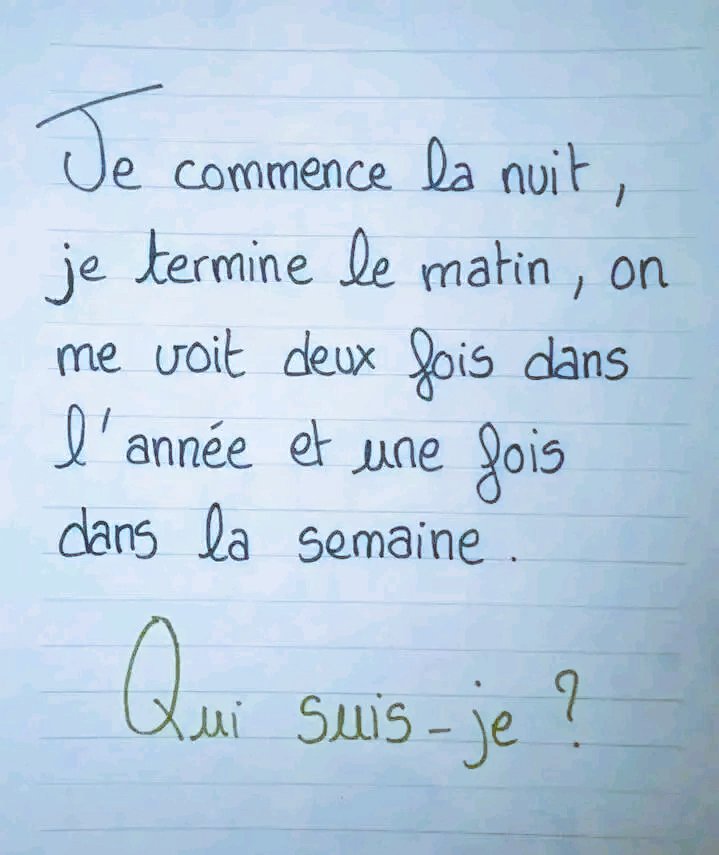 Je commence la nuit,
je termine le matin, on
me voit deux fois dans
l'année et une fois
dans la semaine.
Qui suis-je ?